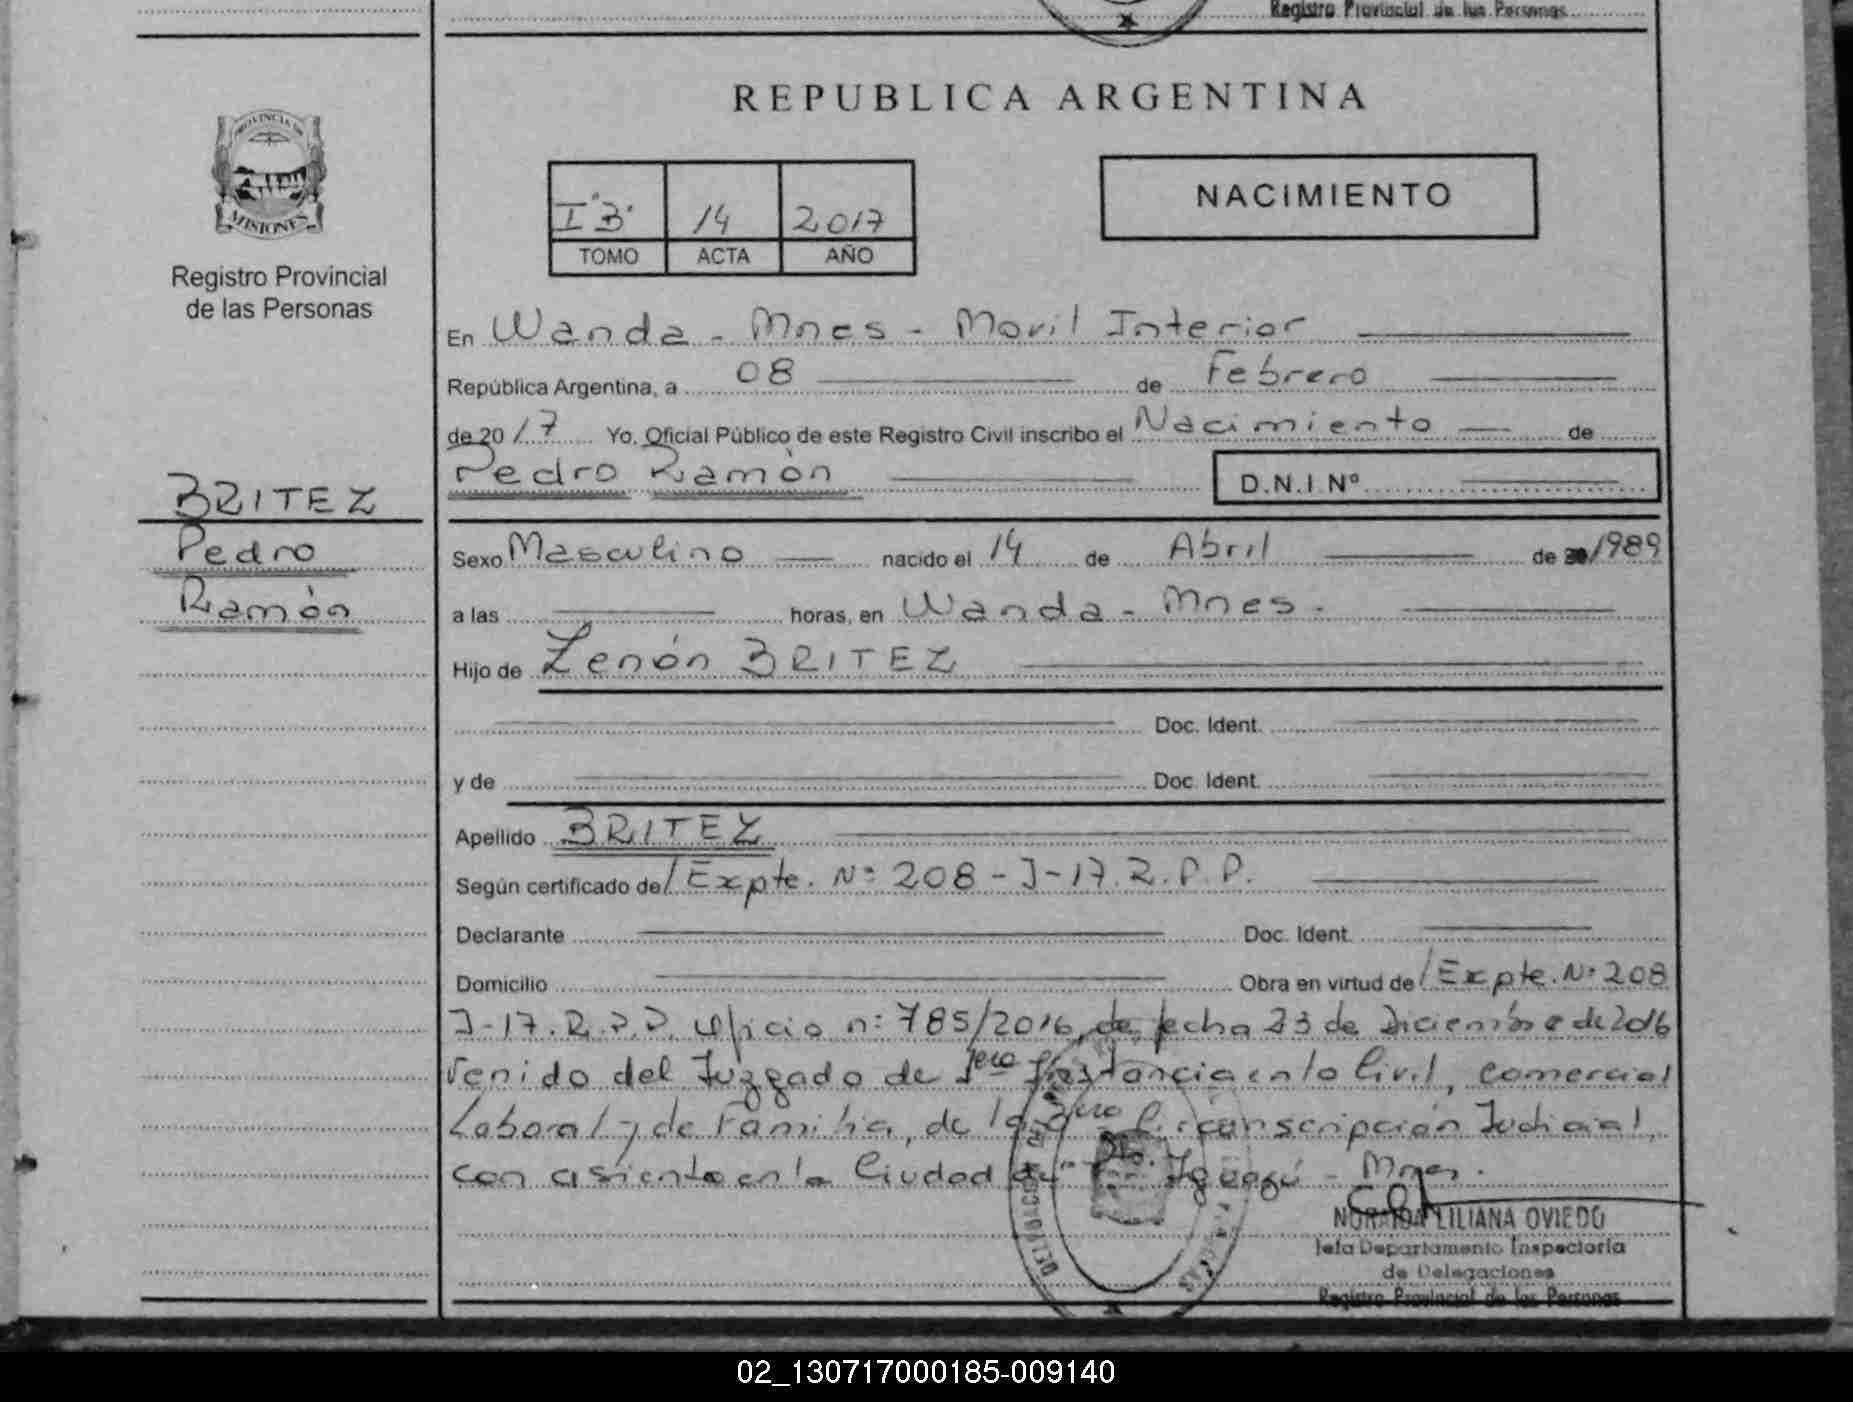 Registro Provincial de las Personas
REPUBLICA ARGENTINA
PROVINCIA DE
MISIONES
Registro Provincial
de las Personas
I°"B" 14 2017
TOMO ACTA AÑO
NACIMIENTO
En Wanda - Mnes - Movil Interior
República Argentina, a 08 de Febrero
de 20 17 Yo, Oficial Público de este Registro Civil inscribo el Nacimiento de
Pedro Ramón D.N.I.Nº
BRITEZ
Pedro
Ramón
Sexo Masculino nacido el 14 de Abril de 1989
a las horas, en Wanda - Mnes -
Hijo de Zenón BRITEZ
Doc. Ident.
y de Doc. Ident.
Apellido BRITEZ
Según certificado de / Expte. Nº 208 - J - 17. R. P. P.
Declarante Doc. Ident.
Domicilio Obra en virtud de / Expte. Nº 208
J - 17. R. P. P. Oficio nº 785/2016, de fecha 23 de Diciembre de 2016
venido del Juzgado de 1ero Instancia en lo Civil, Comercial
Laboral y de Familia, de la 3era Circunscripción Judicial,
con asiento en la Ciudad de Pto. Iguazú - Mnes.
NORAIDA LILIANA OVIEDO
Jefa Departamento Inspectoría
de Delegaciones
Registro Provincial de las Personas
02_130717000185-009140